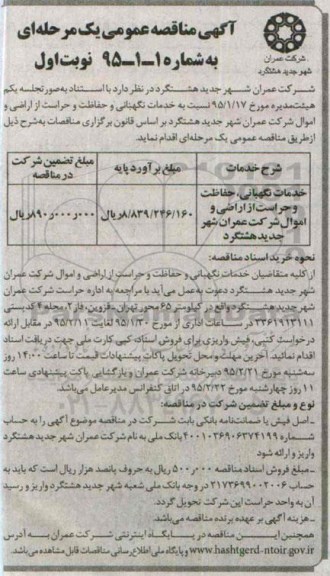 شرکت عمران
شهر جدید هشتگرد
آگهی مناقصه عمومی یک مرحله‌ای
به شماره ۱-۱-۹۵ نوبت اول
شرکت عمران شهر جدید هشتگرد در نظر دارد با استناد به صورتجلسه یکم
هیئت‌مدیره مورخ ۹۵/۱/۱۷ نسبت به خدمات نگهبانی و حفاظت و حراست از اراضی و
اموال شرکت عمران شهر جدید هشتگرد بر اساس قانون برگزاری مناقصات به شرح ذیل
از طریق مناقصه عمومی یک مرحله‌ای اقدام نماید.
شرح خدمات
مبلغ برآورد پایه
مبلغ تضمین شرکت در مناقصه
خدمات نگهبانی، حفاظت
و حراست از اراضی و
اموال شرکت عمران شهر
جدید هشتگرد
۸/۸۳۹/۲۴۶/۱۶۰ریال
۸۹۰٫۰۰۰٫۰۰۰ریال
نحوه خرید اسناد مناقصه:
از کلیه متقاضیان خدمات نگهبانی و حفاظت و حراست از اراضی و اموال شرکت عمران
شهر جدید هشتگرد دعوت به عمل می‌آید با مراجعه به اداره حراست شرکت عمران
شهر جدید هشتگرد واقع در کیلومتر ۶۵ محور تهران-قزوین، فاز۲، محله۴ کدپستی
۳۳۶۱۹۱۳۱۱۱ در ساعات اداری از مورخ ۹۵/۱/۳۰ لغایت ۹۵/۲/۱۱ در مقابل ارائه
درخواست کتبی، فیش واریزی برای فروش اسناد، کپی کارت ملی جهت دریافت اسناد
اقدام نمائید. آخرین مهلت و محل تحویل پاکات پیشنهادات قیمت تا ساعت ۱۴:۰۰ روز
سه‌شنبه مورخ ۹۵/۲/۲۱ دبیرخانه شرکت عمران و بازگشایی پاکت پیشنهادی ساعت
۱۱ روز چهارشنبه مورخ ۹۵/۲/۲۲ در اتاق کنفرانس مدیرعامل می‌باشد.
نوع و مبلغ تضمین شرکت در مناقصه:
ـ اصل فیش یا ضمانت‌نامه بانکی بابت شرکت در مناقصه موضوع آگهی را به حساب
شماره ۴۰۰۱۰۳۶۹۰۶۳۷۴۱۹۹ بانک ملی به نام شرکت عمران شهر جدید هشتگرد
واریز و ارائه شود
ـ مبلغ فروش اسناد مناقصه ۵۰۰٫۰۰۰ ریال به حروف پانصد هزار ریال است که باید به
حساب ۲۱۷۳۶۹۹۰۰۲۰۰۶ در وجه بانک ملی شعبه شهر جدید هشتگرد واریز و رسید
آن به واحد حراست این شرکت تحویل گردد.
ـ هزینه آگهی بر عهده برنده مناقصه می‌باشد.
همچنین این مناقصه در پایگاه اینترنتی شرکت عمران به آدرس
www.hashtgerd-ntoir.gov.ir و پایگاه ملی اطلاع‌رسانی مناقصات قابل مشاهده می‌باشد.